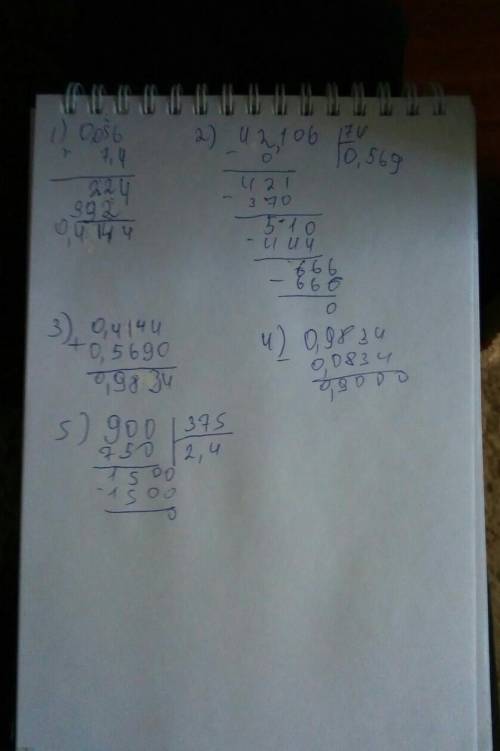 1) 0,056
× 7,4
224
392
0,4144
2) 42,106 | 74
- 0 0,569
421
- 370
510
- 444
666
- 666
0
3) 0,4144
+ 0,5690
0,9834
4) 0,9834
- 0,0834
0,9000
5) 900 | 375
750 2,4
1500
- 1500
0